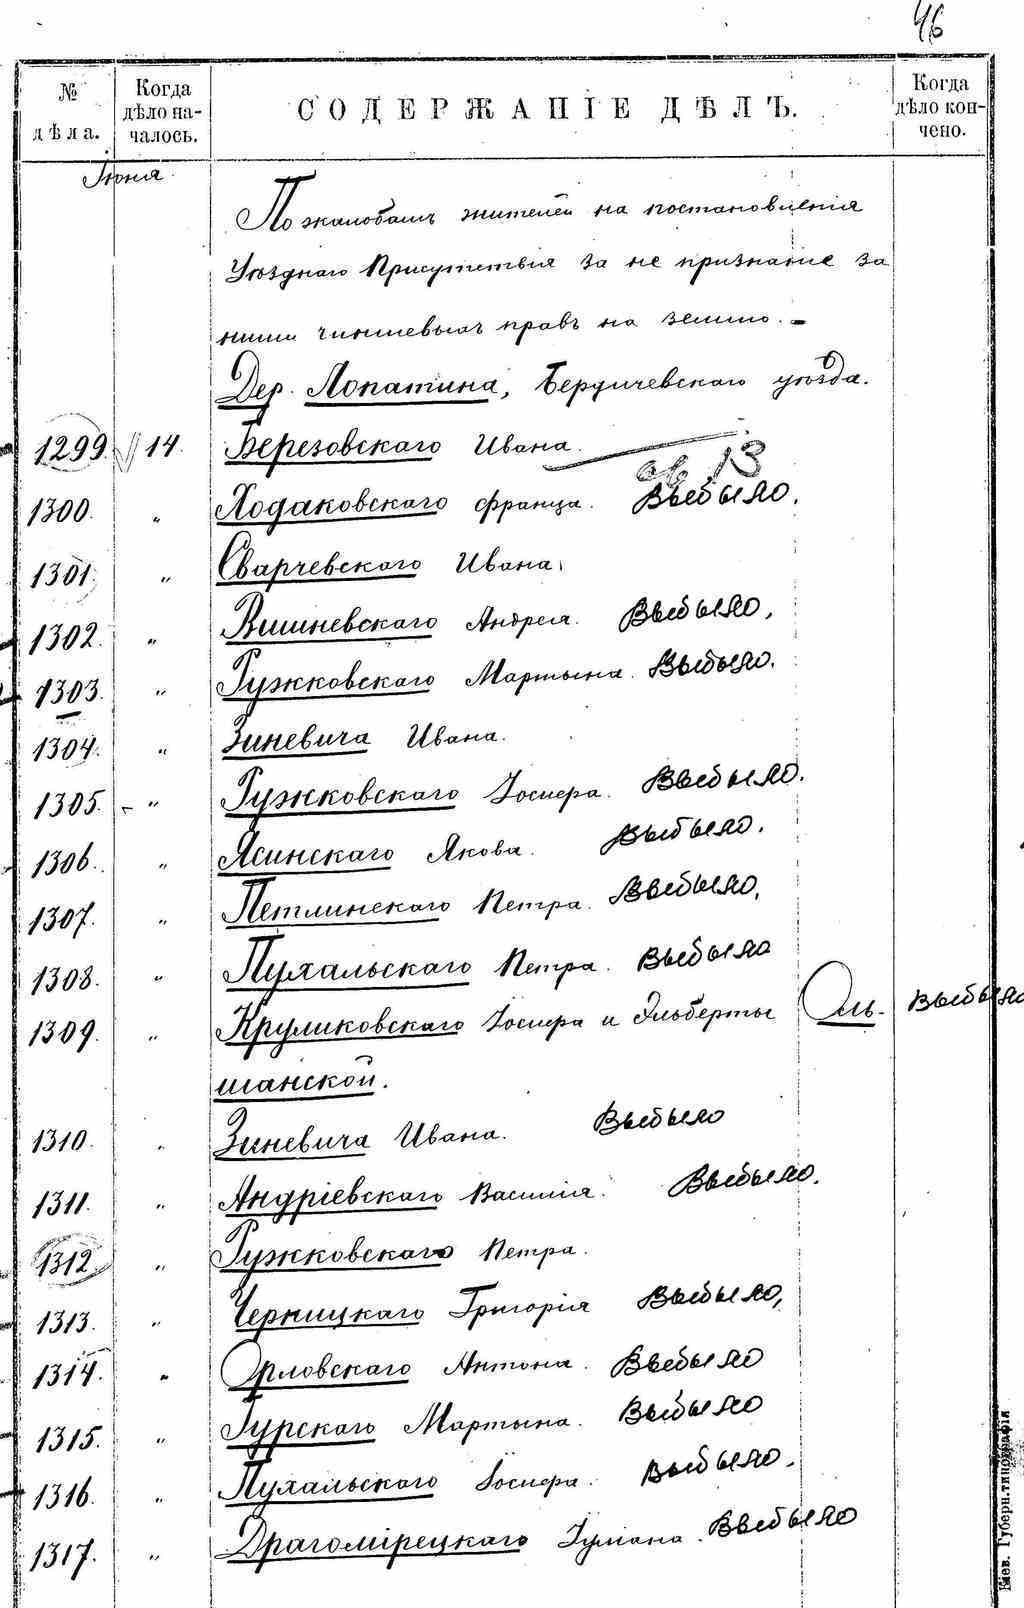 46
№ дѣла.
Когда дѣло началось.
СОДЕРЖАНІЕ ДѢЛЪ.
Когда дѣло кончено.
Іюня
По жалобамъ жителей на постановленія
Уѣзднаго Присутствія за не признаніе за
ними чиншевыхъ правъ на землю. -
Дер. Лопатина, Бердичевскаго уѣзда.
1299. 14. Березовскаго Ивана.
1300. „ Ходаковскаго Франца. Выбыло.
1301. „ Сварчевскаго Ивана.
1302. „ Вишневскаго Андрея. Выбыло.
1303. „ Гужковскаго Мартына. Выбыло.
1304. „ Зиневича Ивана.
1305. „ Гужковскаго Іосифа. Выбыло.
1306. „ Ясинскаго Якова. Выбыло.
1307. „ Петлинскаго Петра. Выбыло.
1308. „ Пухальскаго Петра. Выбыло
1309. „ Круликовскаго Іосифа и Эльберты Оль- Выбыло
шанской.
1310. „ Зиневича Ивана. Выбыло
1311. „ Андріевскаго Василія. Выбыло.
1312. „ Гужковскаго Петра.
1313. „ Черницкаго Григорія Выбыло.
1314. „ Орловскаго Антона. Выбыло
1315. „ Гурскаго Мартына. Выбыло
1316. „ Пухальскаго Іосифа. Выбыло.
1317. „ Драгомірецкаго Выбыло
Кіев. Губерн. типографія